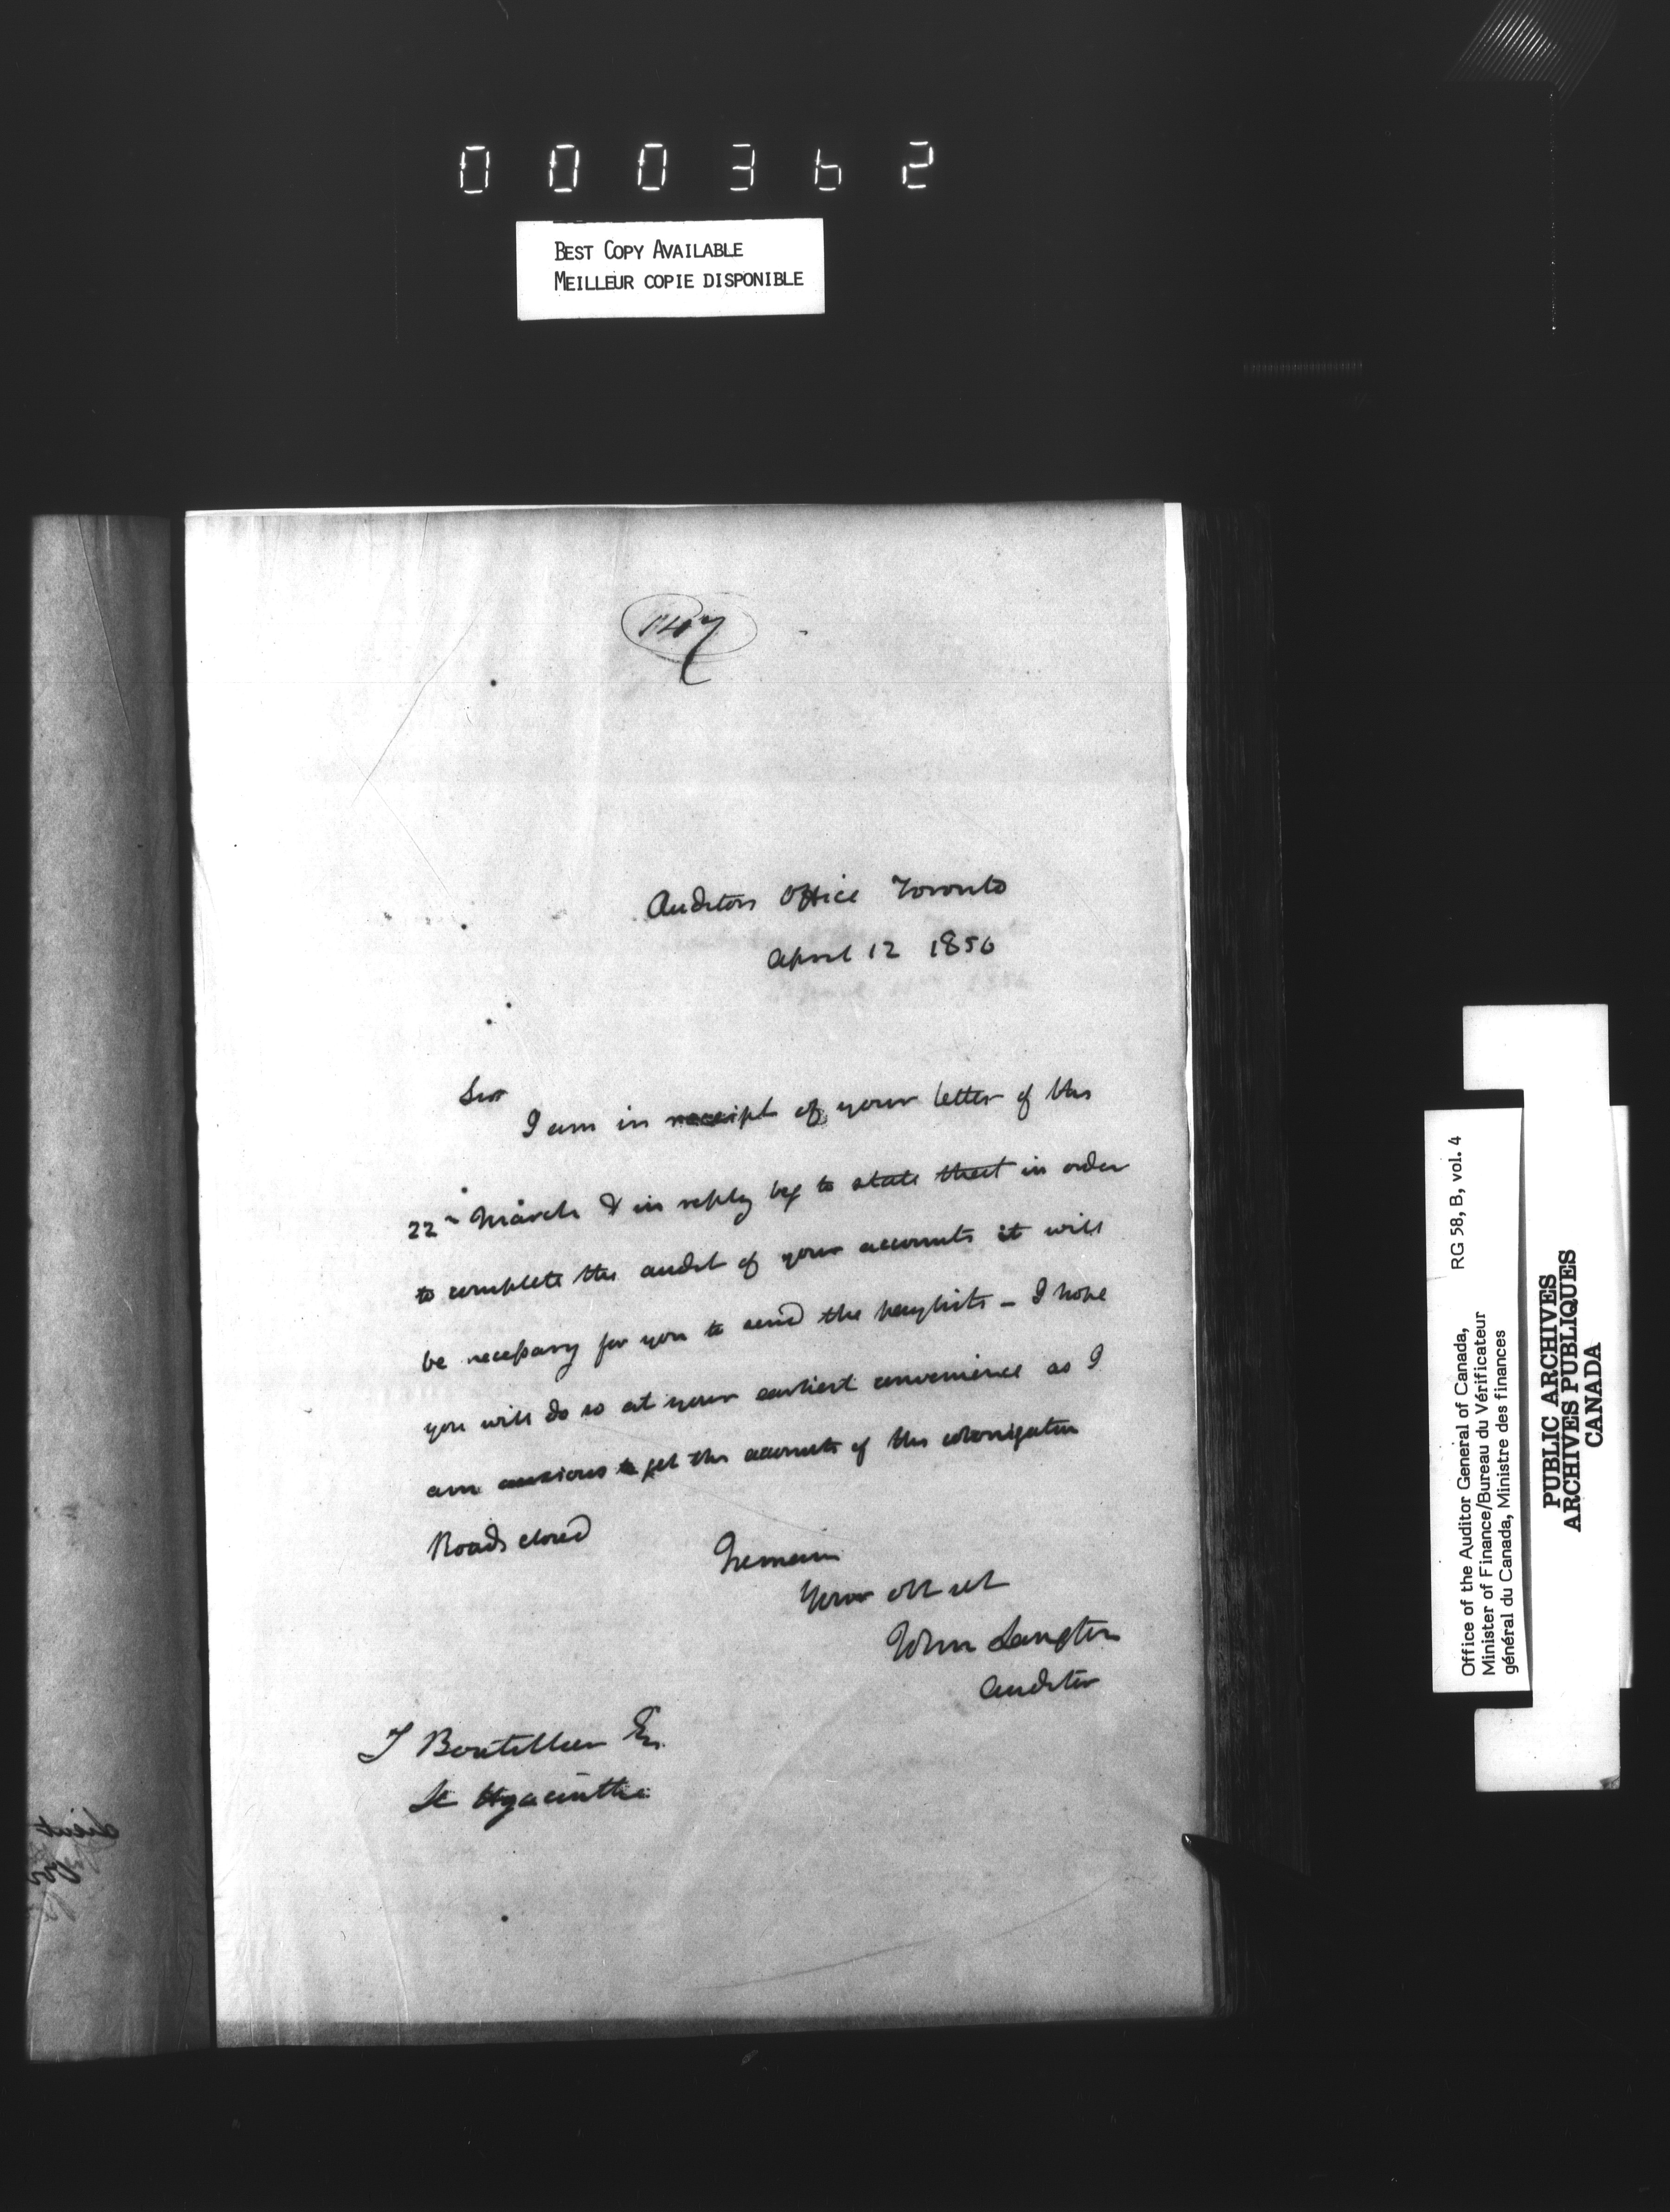 000362
BEST COPY AVAILABLE
MEILLEUR COPIE DISPONIBLE
147
Auditors Office Toronto
April 12 1856
Sir
I am in receipt of your letter of the
22n March & in reply beg to state that in order
to complete the audit of your accounts it will
be necessary for you to send the paylists - I hope
you will do so at your earliest convenience as I
am anxious to get the accounts of the colonization
Roads closed
I remain
Your obt svt
John Langton
Auditor
T Boutillier Esq.
St Hyacinthe
RG 58, B, vol. 4
Office of the Auditor General of Canada,
Minister of Finance/Bureau du Vérificateur
général du Canada, Ministre des finances
PUBLIC ARCHIVES
ARCHIVES PUBLIQUES
CANADA